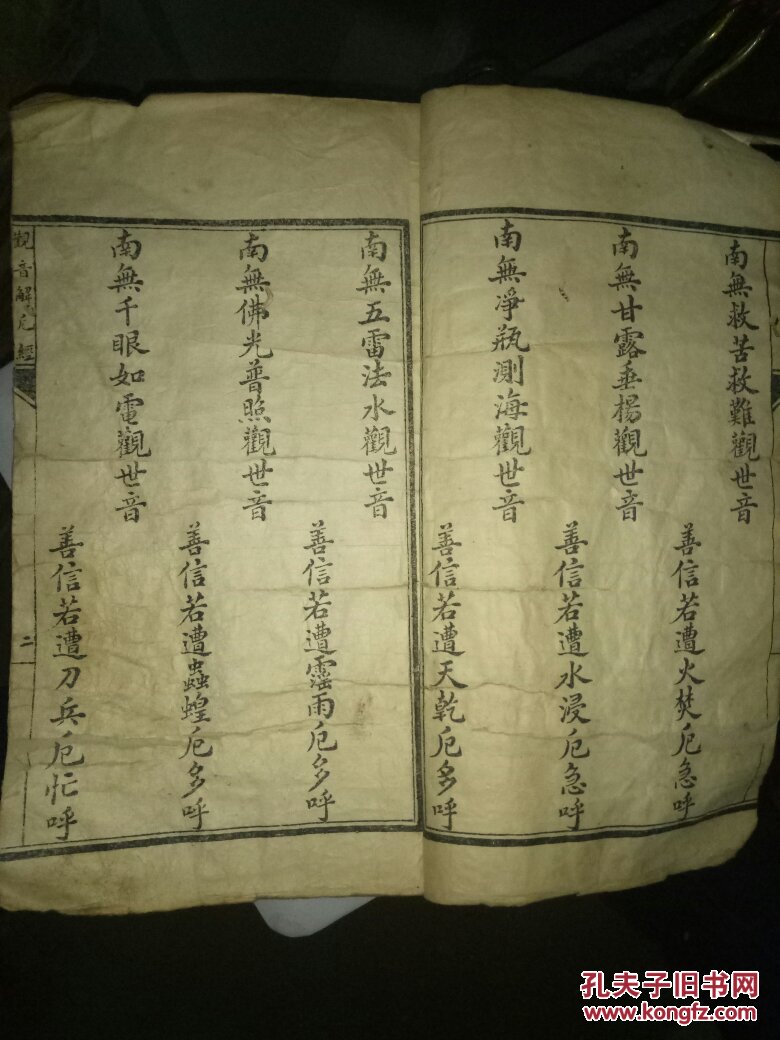 南無救苦救難觀世音
善信若遭火焚厄急呼
南無甘露垂楊觀世音
善信若遭水浸厄急呼
南無淨瓶測海觀世音
善信若遭天乾厄多呼
南無五雷法水觀世音
善信若遭霪雨厄多呼
南無佛光普照觀世音
善信若遭蟲蝗厄多呼
南無千眼如電觀世音
善信若遭刀兵厄忙呼
觀音解厄經
二
孔夫子旧书网
www.kongfz.com